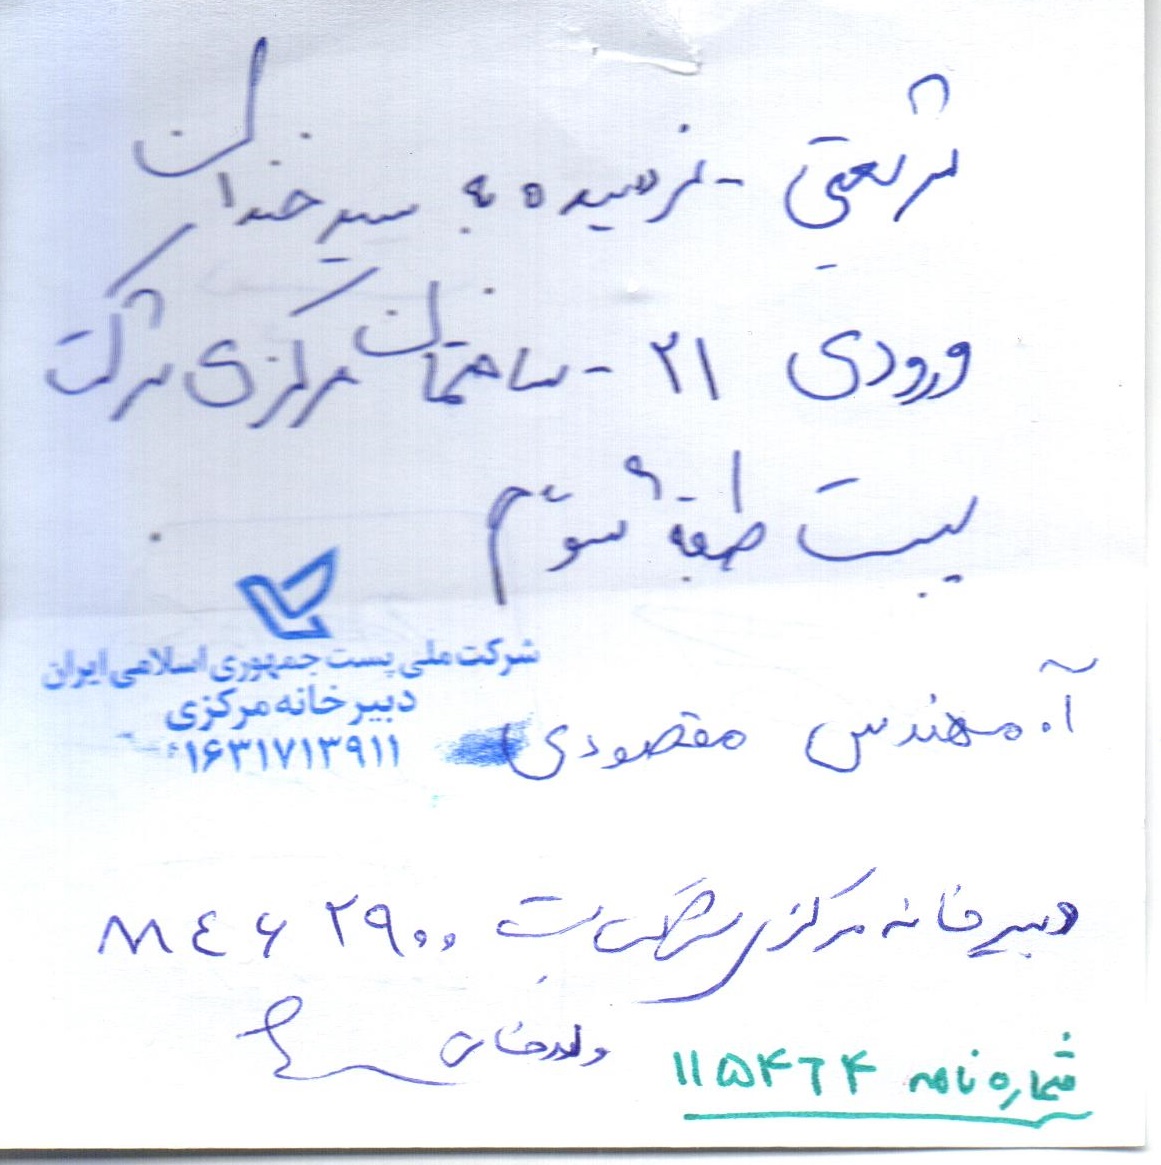 شریعتی - نرسیده به سیدخندان
ورودی ۲۱ - ساختمان مرکزی شرکت
پست طبقه سوّم
شرکت ملی پست جمهوری اسلامی ایران
دبیرخانه مرکزی
۱۶۳۱۷۱۳۹۱۱
آ. مهندس مقصودی
دبیرخانه مرکزی شرکت پست
شماره نامه ۱۱۵۴۶۴